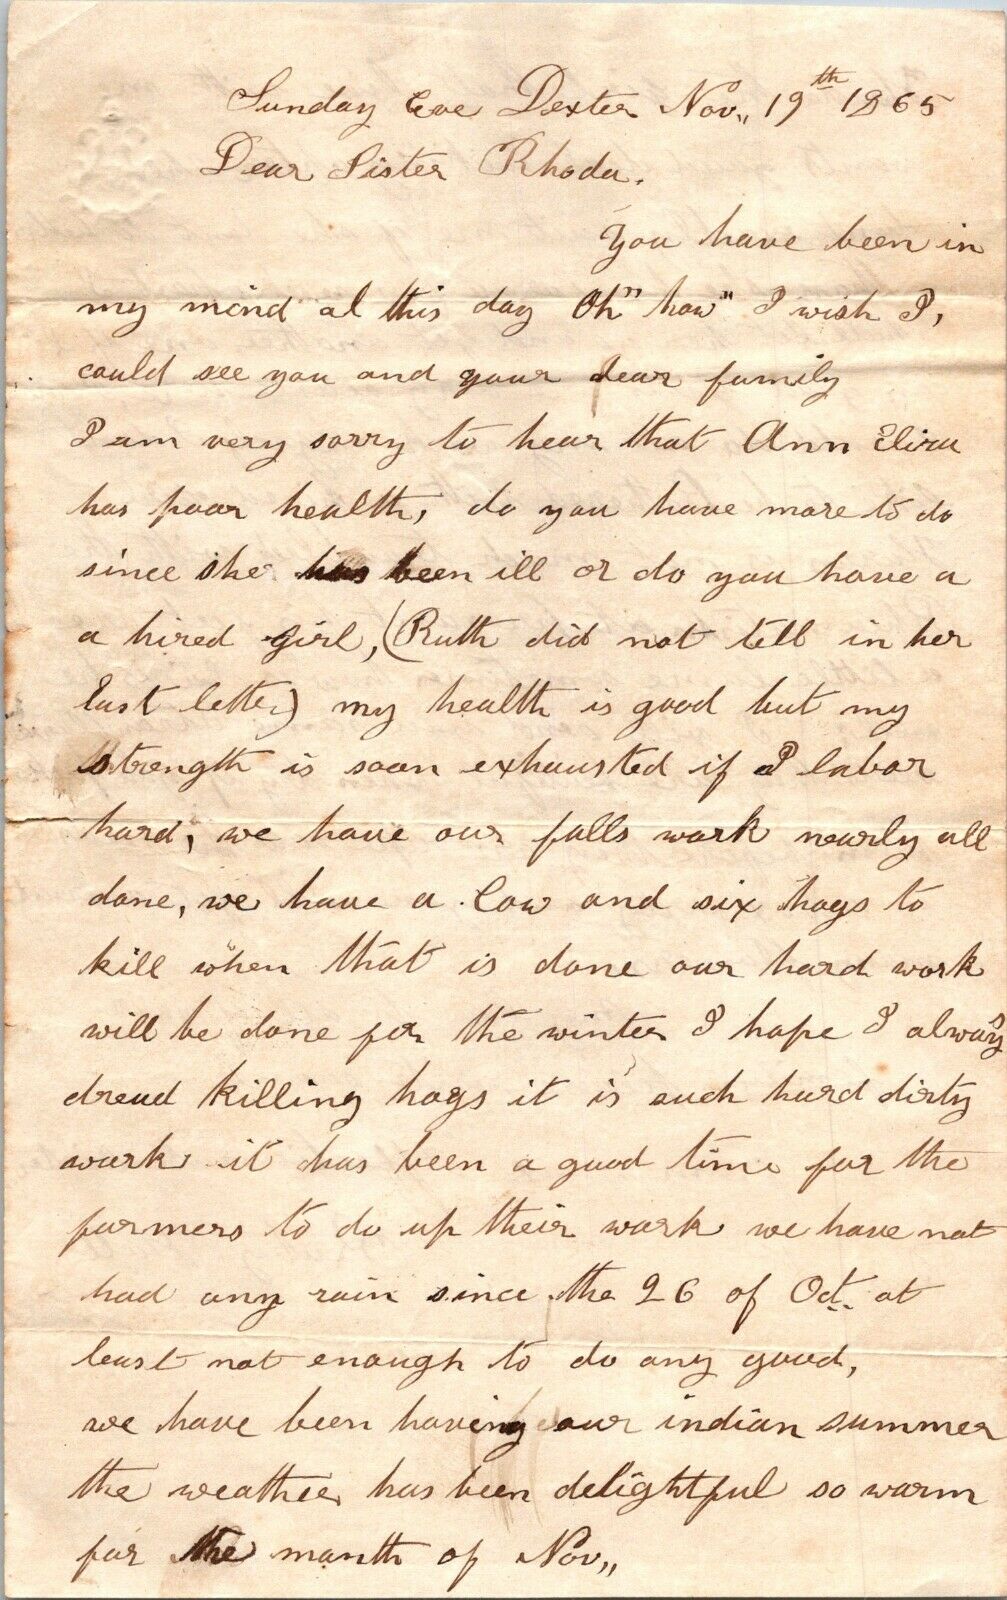 Sunday Eve Dexter Nov,, 19th 1865
Dear Sister Rhoda.
You have been in
my mind al this day Oh" how" I wish I,
could see you and your dear family
I am very sorry to hear that Ann Eliza
has poor health, do you have more to do
since she has been ill or do you have a
a hired girl, (Ruth did not tell in her
last letter) my health is good but my
strength is soon exhausted if I labor
hard, we have our falls work nearly all
done, we have a Cow and six hogs to
kill when that is done our hard work
will be done for the winter I hope I always
dread killing hogs it is such hard dirty
work it has been a good time for the
farmers to do up their work we have not
had any rain since the 26 of Oct. at
least not enough to do any good,
we have been having our indian summer
the weather has been delightful so warm
for the month of Nov,,